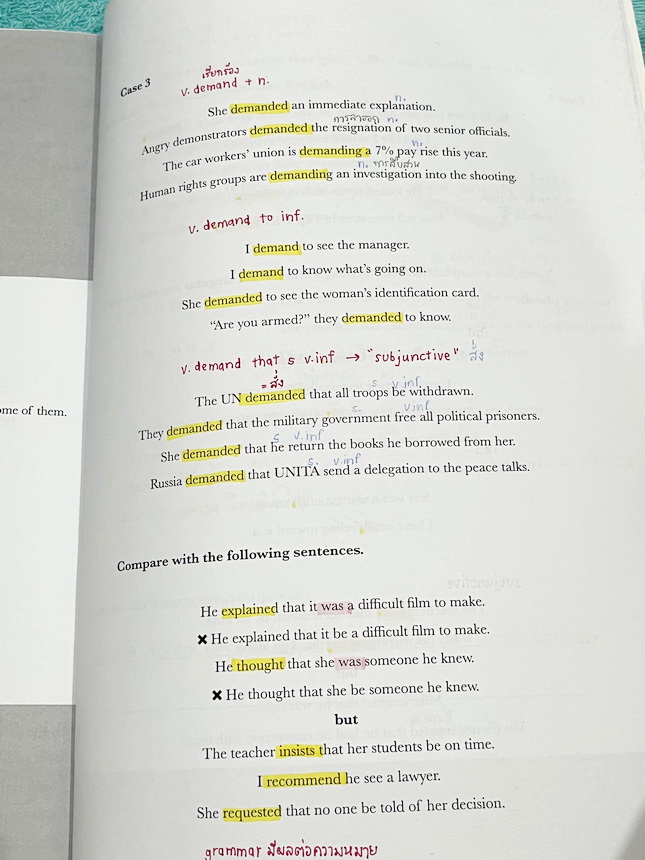 Case 3
เรียกร้อง
v. demand + n.
n.
She demanded an immediate explanation.
การลาออก n.
Angry demonstrators demanded the resignation of two senior officials.
n.
The car workers' union is demanding a 7% pay rise this year.
n. การสืบสวน
Human rights groups are demanding an investigation into the shooting.
v. demand to inf.
I demand to see the manager.
I demand to know what's going on.
She demanded to see the woman's identification card.
"Are you armed?" they demanded to know.
v. demand that s v.inf → "subjunctive" สั่ง
= สั่ง
s v.inf
The UN demanded that all troops be withdrawn.
s. v.inf
They demanded that the military government free all political prisoners.
s v.inf
She demanded that he return the books he borrowed from her.
s. v.inf
Russia demanded that UNITA send a delegation to the peace talks.
ome of them.
Compare with the following sentences.
He explained that it was a difficult film to make.
✗ He explained that it be a difficult film to make.
He thought that she was someone he knew.
✗ He thought that she be someone he knew.
but
The teacher insists that her students be on time.
I recommend he see a lawyer.
She requested that no one be told of her decision.
grammar มีผลต่อความหมาย